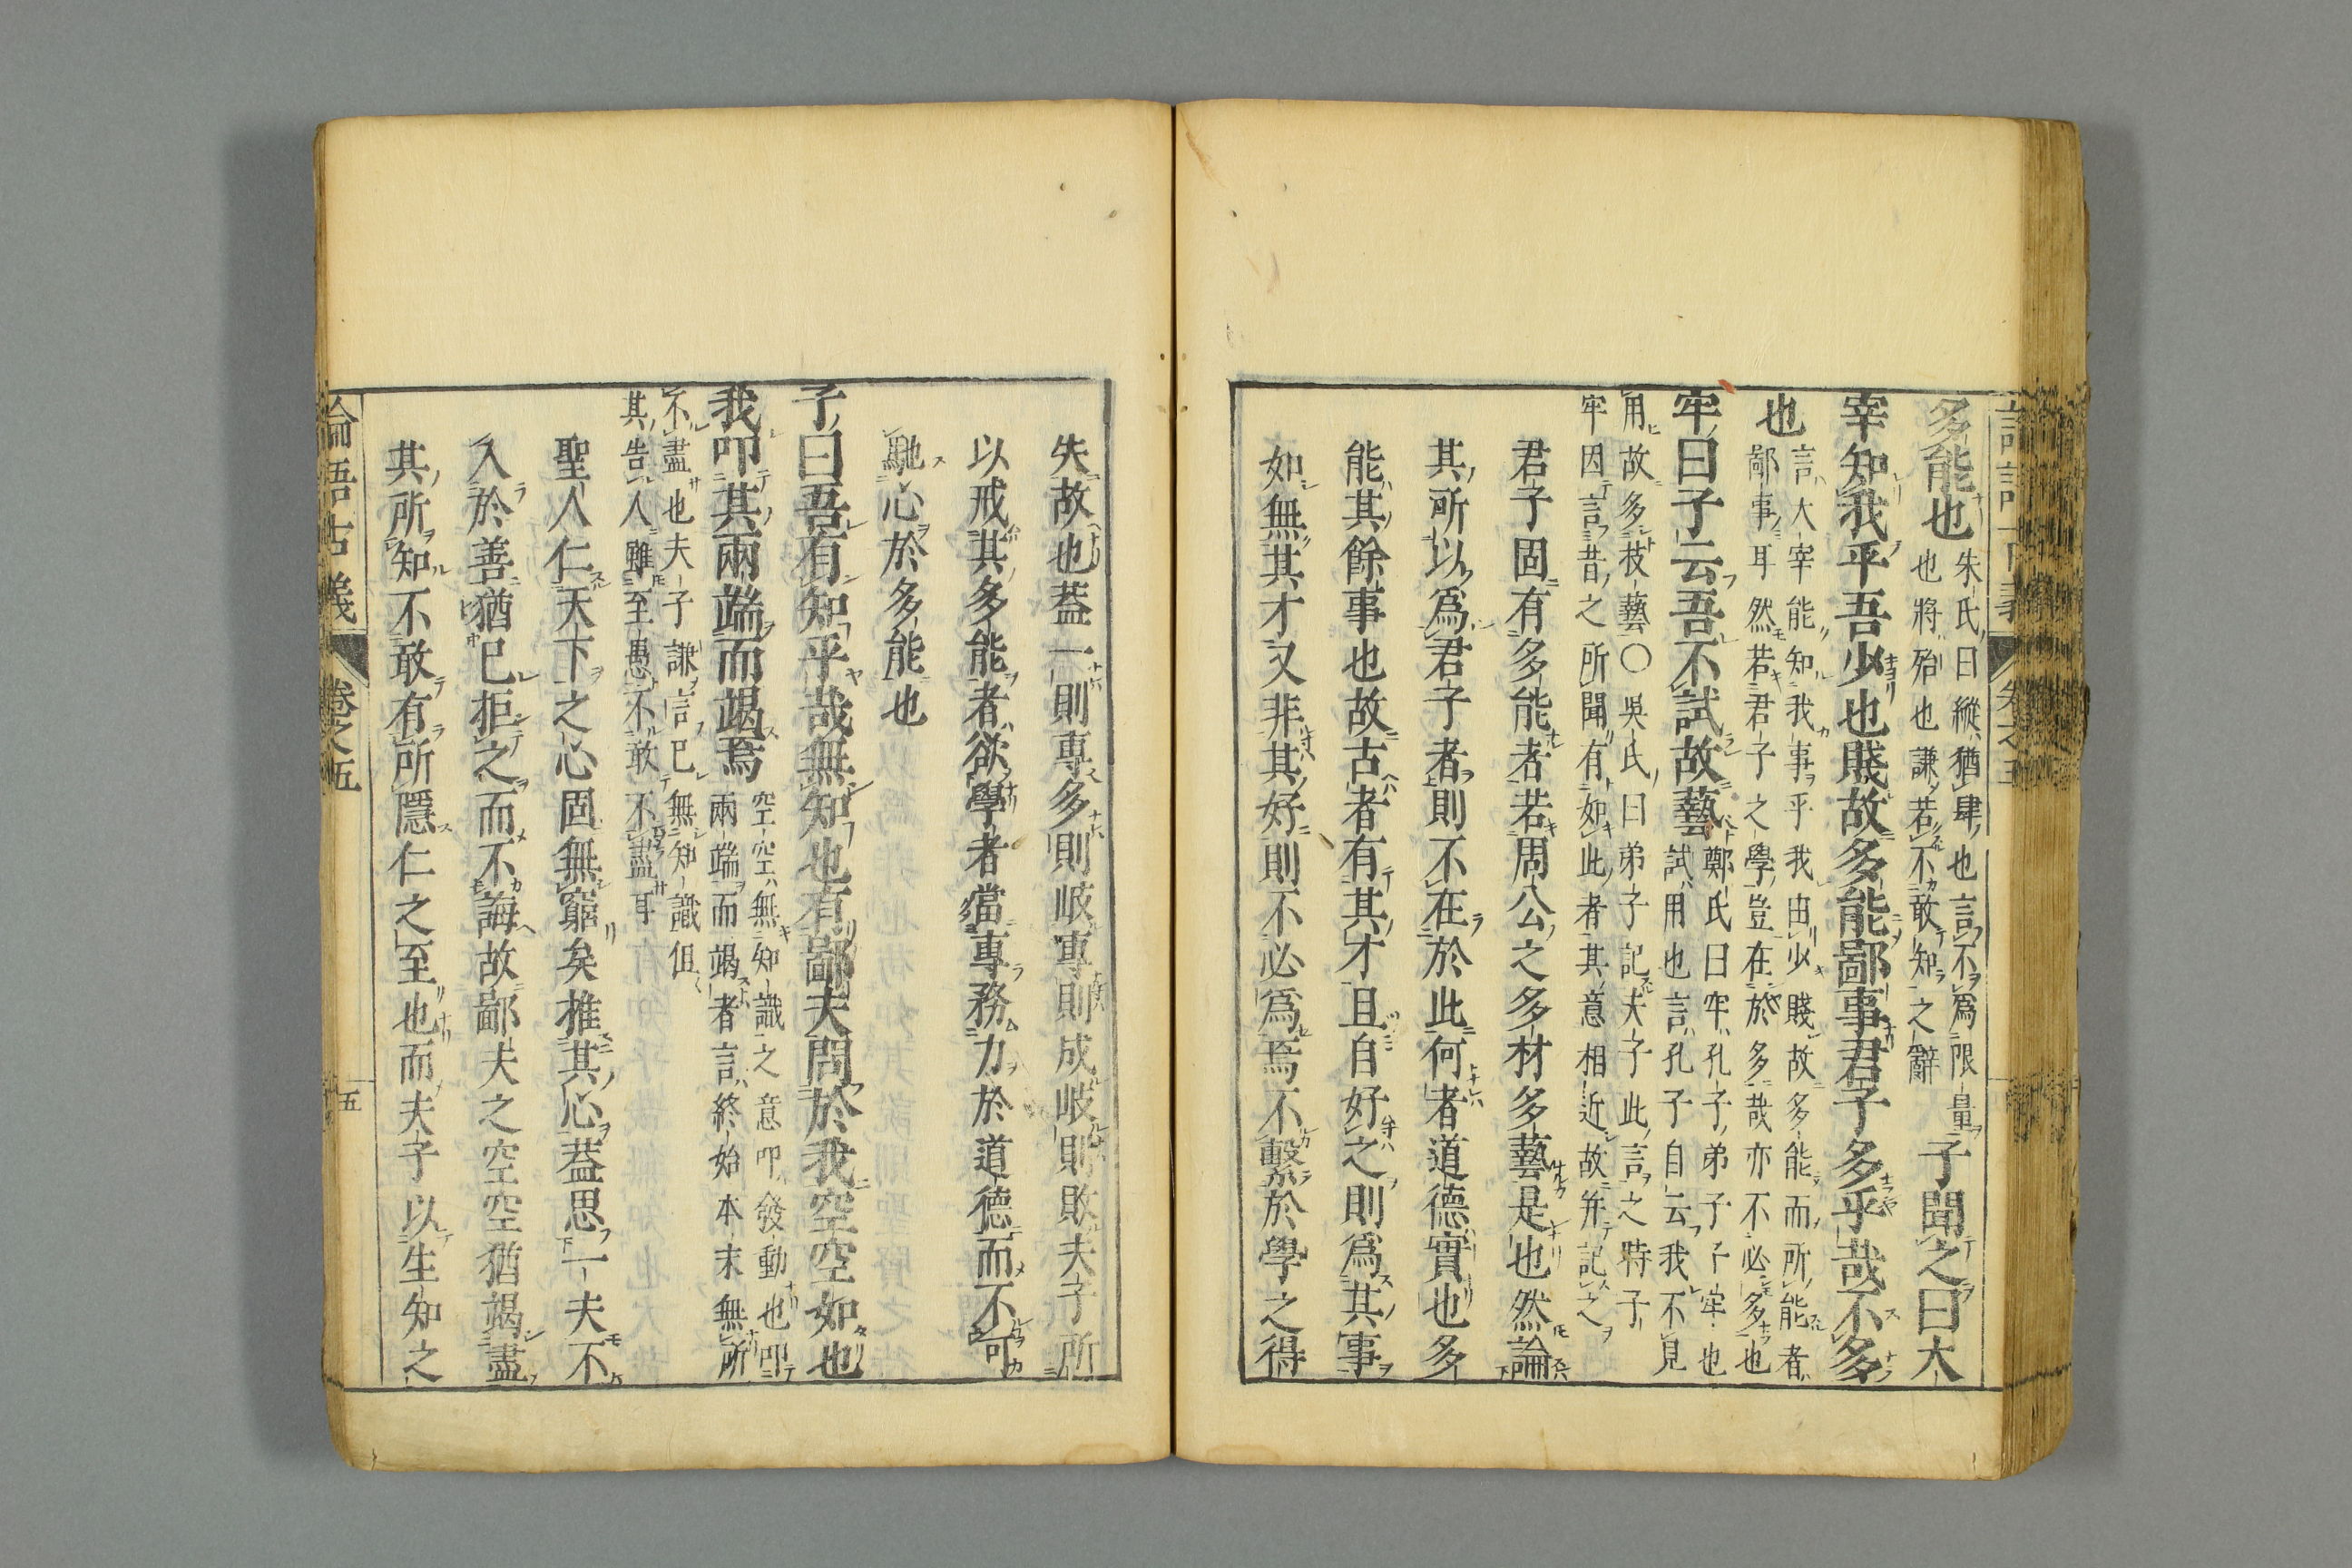 多能也朱氏曰縱猶肆也言不爲限量也將殆也謙若不敢知之辭子聞之曰大
宰知我乎吾少也賤故多能鄙事君子多乎哉不多
也言大宰能知我事乎我由少賤故多能而所能者鄙事耳然若君子之學豈在於多哉亦不必多也
牢曰子云吾不試故藝鄭氏曰牢孔子弟子子牢也試用也言孔子自云我不見
用故多技藝〇吳氏曰弟子記夫子此言之時子
牢因言昔之所聞有如此者其意相近故幷記之
君子固有多能者若周公之多材多藝是也然論
其所以爲君子者則不在於此何者道德實也多
能其餘事也故古者有其才且自好之則爲其事
如無其才又非其好則不必爲焉不繫於學之得
失故也葢一則專多則岐專則成岐則敗夫子所
以戒其多能者欲學者當專務力於道德而不可
馳心於多能也
子曰吾有知乎哉無知也有鄙夫問於我空空如也
我叩其兩端而竭焉空空無知識之意叩發動也叩兩端而竭者言終始本末無所
不盡也夫子謙言己無知識但
其告人雖至愚不敢不盡耳
聖人仁天下之心固無窮矣推其心葢思一夫不
入於善猶己拒之而不誨故鄙夫之空空猶竭盡
其所知不敢有所隱仁之至也而夫子以生知之
論語古義
卷之五
五